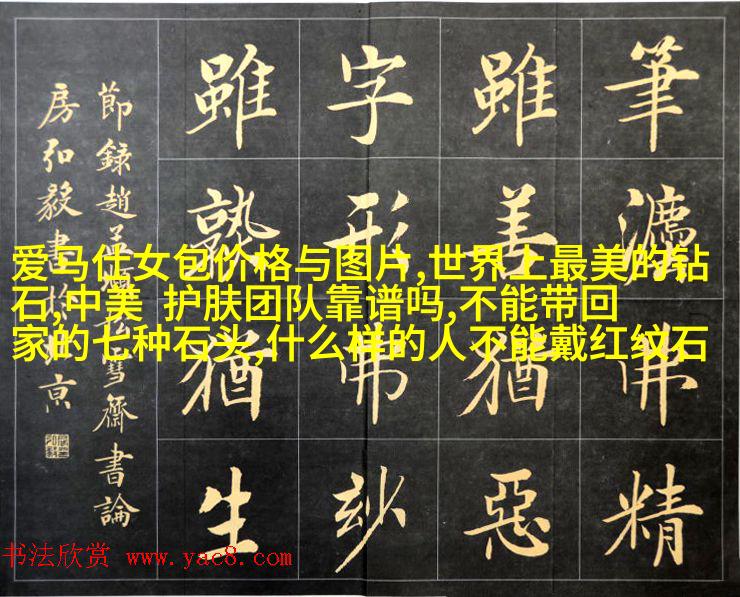 筆灋佛精
雖善猶惡
字形佛玅
雖熟猶生
節錄趙孟頫松雪齋書論
房弘毅書於北京
爱马仕女包价格与图片,世界上最美的钻
石,中美 护肤团队靠谱吗,不能带回
家的七种石头,什么样的人不能戴红纹石
书法欣赏 www.yac8.com